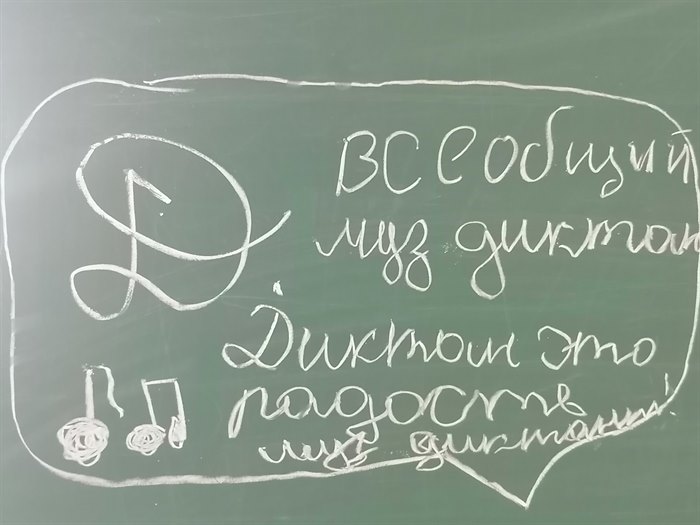 Д
ВСеобщий
муз диктан
Диктан это
радость
муз диктант!